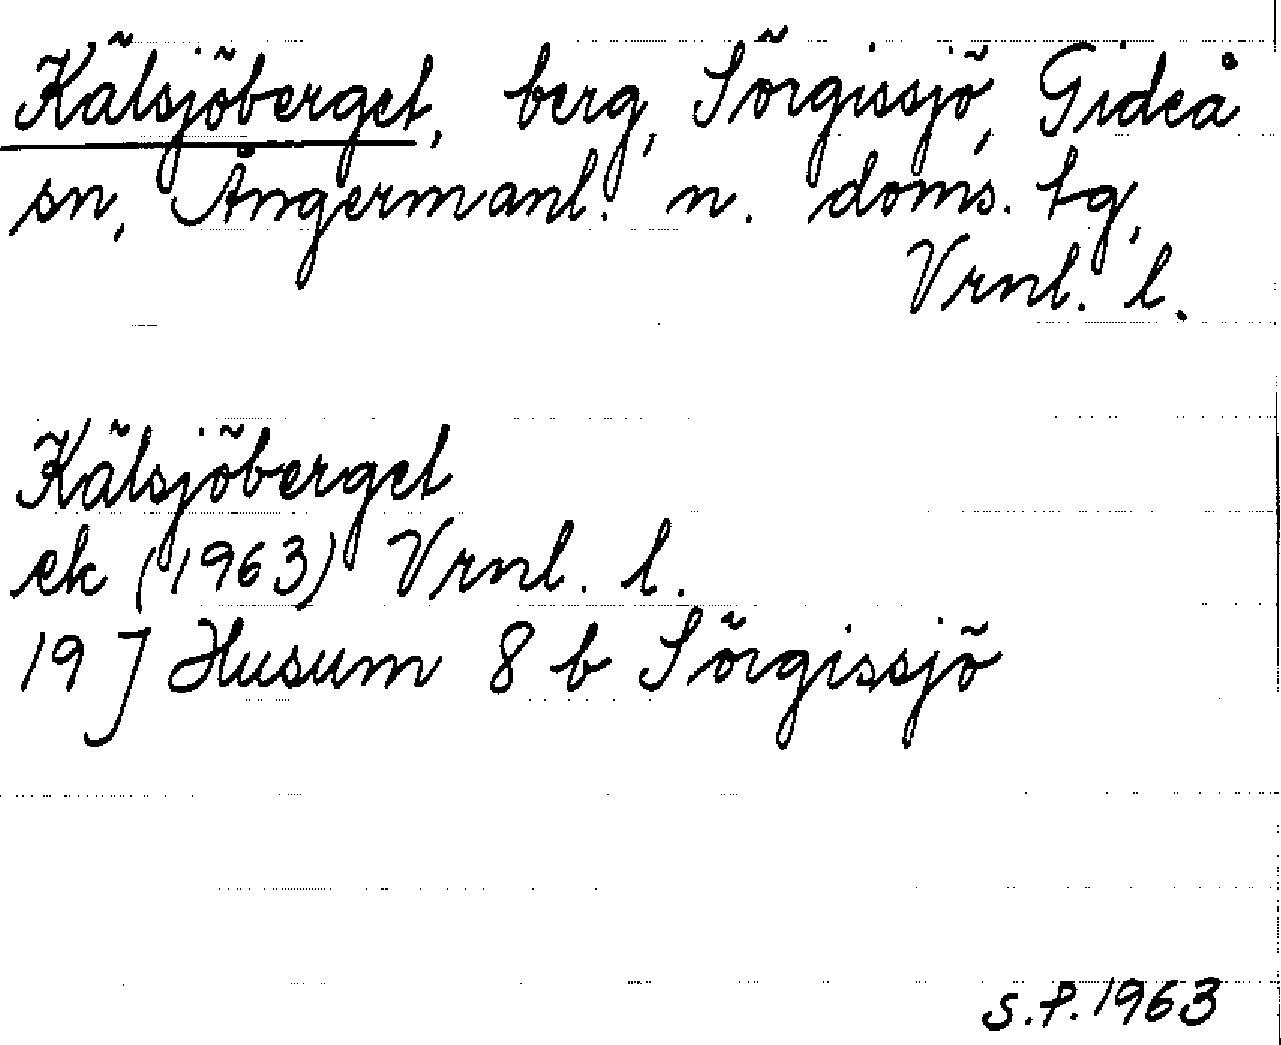 Kälsjöberget, berg, Sörgissjö, Gideå
sn, Ångermanl. n. doms. tg,
Vrnl. l.
Kälsjöberget
ek (1963) Vrnl. l.
19 J Husum 8 b Sörgissjö
S.P. 1963